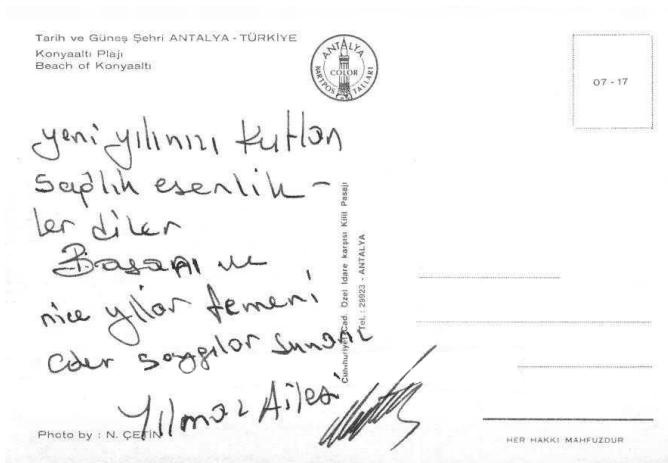 Tarih ve Güneş Şehri ANTALYA - TÜRKİYE
Konyaaltı Plajı
Beach of Konyaaltı
ANTALYA
COLOR
KARTPOSTALLARI
07 - 17
yeni yılınızı kutlar
sağlık esenlik -
ler diler
Başarı ve
nice yıllar temeni
eder saygılar sunarız
Yılmaz Ailesi
Cumhuriyet Cad. Özel İdare karşısı Kilit Pasajı
TEL.: 29923 - ANTALYA
Photo by : N. ÇETİN
HER HAKKI MAHFUZDUR